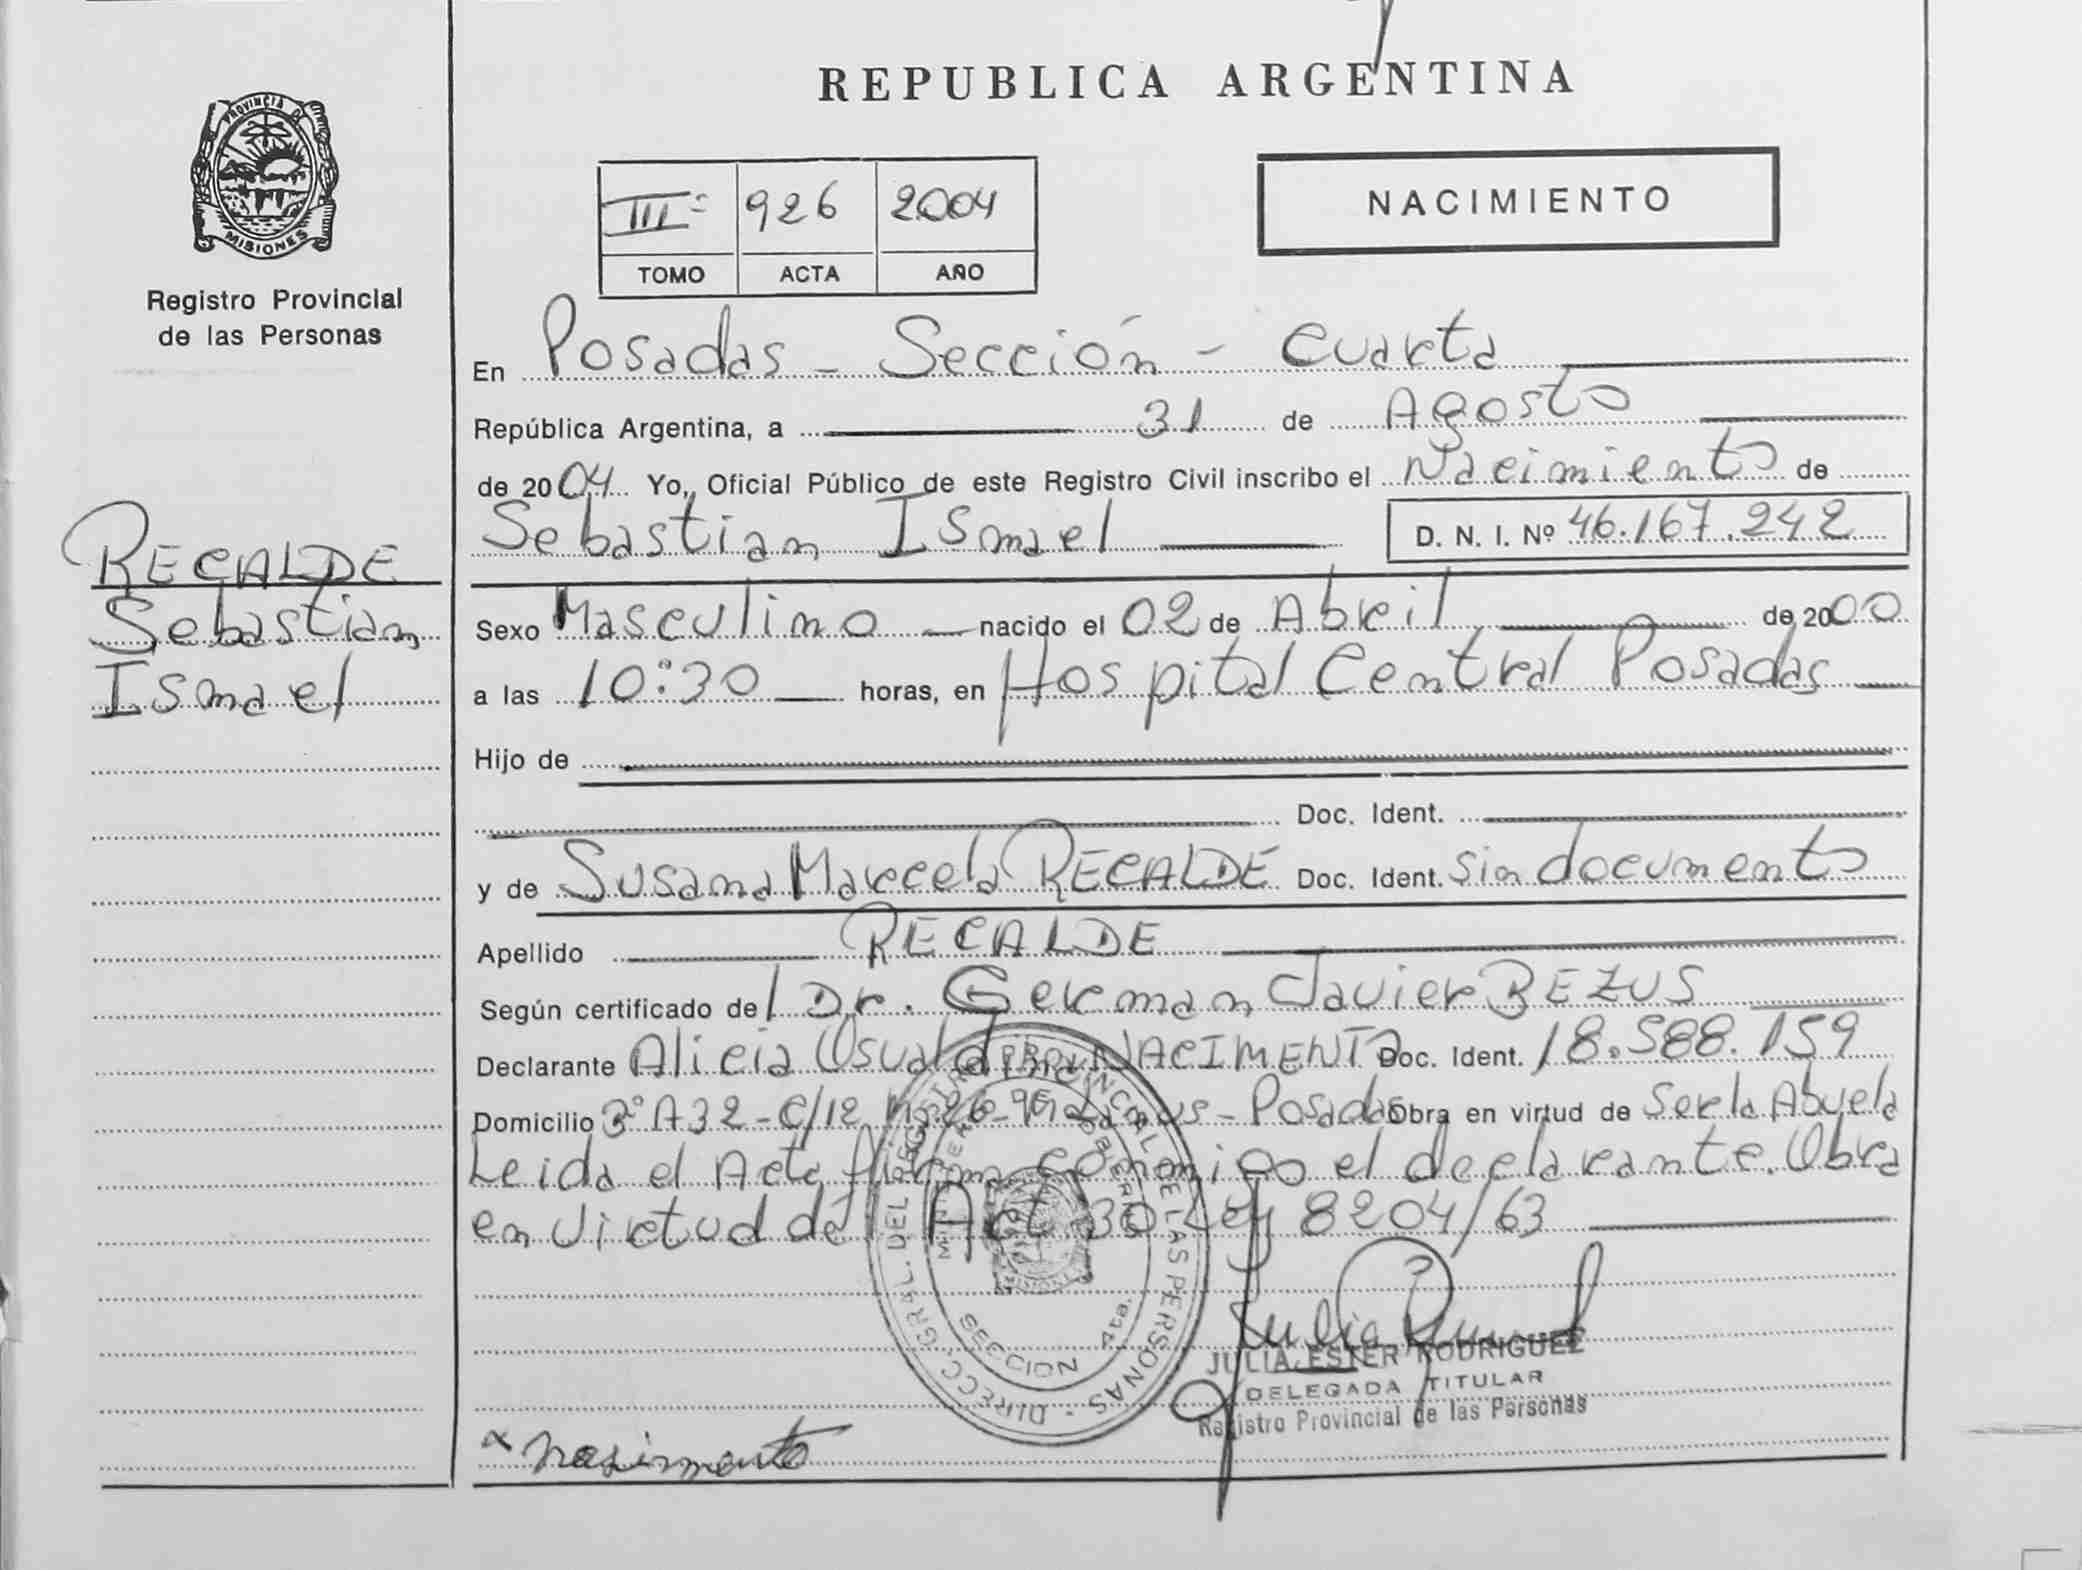 REPUBLICA ARGENTINA
PROVINCIA DE
MISIONES
Registro Provincial
de las Personas
III= 926 2004
TOMO ACTA AÑO
NACIMIENTO
En Posadas - Sección - Cuarta
República Argentina, a 31 de Agosto
de 2004 Yo, Oficial Público de este Registro Civil inscribo el Nacimiento de
Sebastian Ismael D. N. I. Nº 46.167.242
RECALDE
Sebastian
Ismael
Sexo Masculino nacido el 02 de Abril de 2000
a las 10:30 horas, en Hospital Central Posadas
Hijo de
Doc. Ident.
y de Susana Marcela RECALDE Doc. Ident. Sin documento
Apellido RECALDE
Según certificado del Dr. German Javier BEZUS
Declarante Alicia Osvaldina NACIMENTO Doc. Ident. 18.588.159
Domicilio 3º A32 - C/12 - Posadas Obra en virtud de Ser la Abuela
Leida el Acta firma conmigo el declarante. Obra
en virtud del Art. 30 Ley 8204/63
DIRECC. GRAL. DEL REGISTRO PROVINCIAL DE LAS PERSONAS -
SECCION 4ta.
JULIA ESTER RODRIGUEZ
DELEGADA TITULAR
Registro Provincial de las Personas